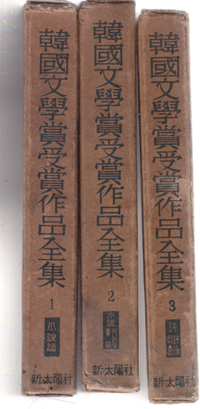 韓國文學賞受賞作品全集
1
小說篇
新太陽社
韓國文學賞受賞作品全集
2
新太陽社
韓國文學賞受賞作品全集
3
新太陽社